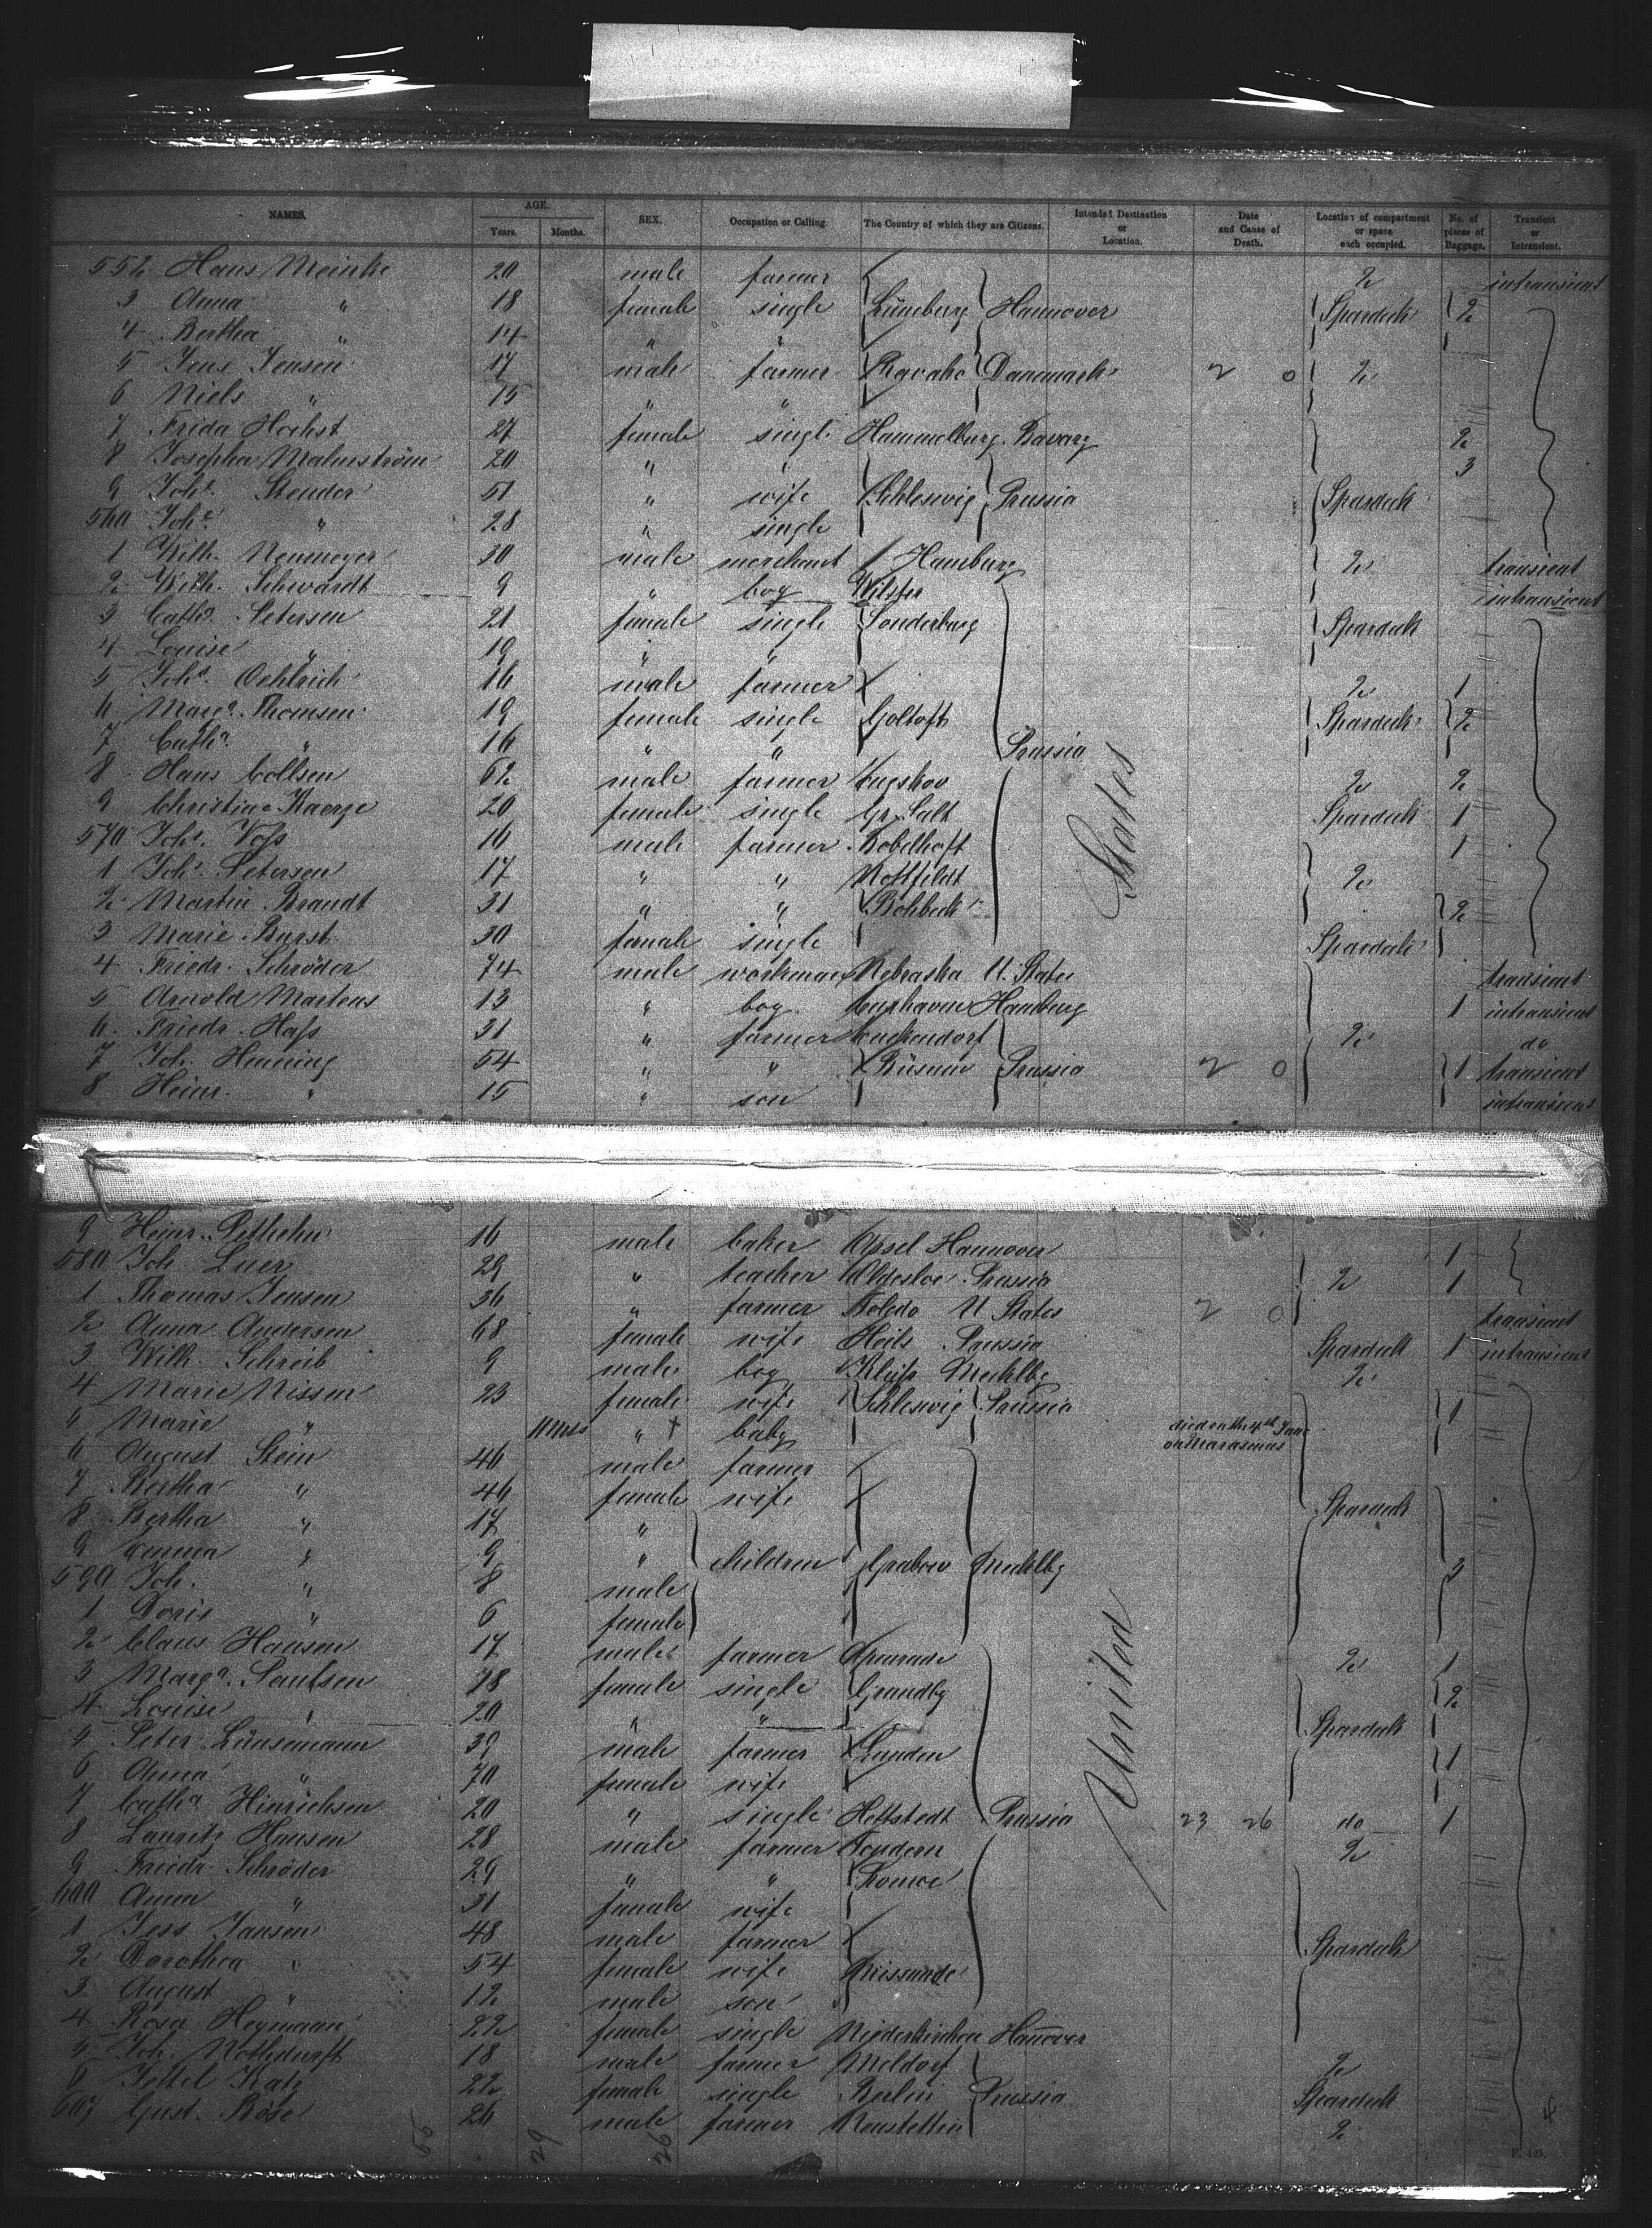 NAMES. AGE. Years. Months. SEX. Occupation or Calling. The Country of which they are Citizens. Intended Destination or Location. Date and Cause of Death. Location of compartment or space each occupied. No. of pieces of Baggage. Transient or Intransient.
552 Hans Meinke 20 male farmer 2 intransient
3 Anna " 18 female single Lüneburg Hannover Spardeck 2
4 Bertha " 14 " "
5 Jens Jensen 17 male farmer Danemark 2 0 2
6 Niels " 15 " "
7 Frida Höchst 27 female single Hammelburg Bavary 2
8 Josepha Malmström 20 " 3
9 Joh. Stender 51 " wife Schleswig Prussia Spardeck
560 Joh. " 28 " single
1 Wilh. Neumeyer 30 male merchant Hamburg 2 transient
2 Wilh. Schwardt 9 " boy Wilster intransient
3 Cath. Petersen 21 female single Sonderburg Spardeck
4 Louise " 19 " "
5 Joh. Oehlrich 16 male farmer 2 1
6 Marga. Thomsen 19 female single Goltoft Spardeck 2
7 Catha. " 16 " " Prussia
8 Hans Collsen 62 male farmer 2 2
9 Christine Kaerge 20 female single Gr. Salt Spardeck 1
570 Joh. Voss 16 male farmer 1
1 Joh. Petersen 17 " " Nottfeldt 2
2 Martin Brandt 31 " " 2
3 Marie Burst 30 female single Spardeck
States
4 Friedr. Schröder 74 male workman Nebraska U. States transient
5 Arnold Martens 13 " boy Cuxhaven Hamburg 1 intransient
6 Friedr. Hass 31 " farmer 2 do
7 Joh. Henning 54 " " Büsum Prussia 2 0 1 transient
8 Heinr. " 15 " son intransient
9 Heinr. 16 male baker Hannover 1
580 Joh. Luer 29 " teacher Oldesloe Prussia 2 1
1 Thomas Jensen 36 " farmer Toledo U. States 2 0 transient
2 Anna Andersen 68 female wife Heils Prussia Spardeck 1 intransient
3 Wilh. Schreib 9 male boy Mecklbg 2
4 Marie Nissen 23 female wife Schleswig Prussia 1
5 Marie " 11 mts " † baby died on the 4th June on Marasmus
6 August Stein 46 male farmer
7 Bertha " 46 female wife Spardeck
8 Bertha " 17 "
9 Emma " 9 " children Grabow Mecklbg 3
590 Joh. " 8 male
1 Doris " 6 female
2 Claus Hansen 17 male farmer Apenrade 2 1
3 Marga. Paulsen 78 female single Grundby 2
4 Louise " 20 " " Spardeck
5 Peter Lünsemann 39 male farmer Lunden 1
6 Anna " 70 female wife
United
7 Catha Hinrichsen 20 " single Hettstedt Prussia 23 26 do 1
8 Lauritz Hansen 28 male farmer Tondern 2
9 Friedr. Schröder 29 " "
600 Anna " 31 female wife
1 Jess Jansen 48 male farmer Spardeck
2 Dorothea " 54 female wife Missunde
3 August " 12 male son
4 Rosa Heymann 22 female single Niederkirchen Hannover
5 Joh. Nothdurft 18 male farmer Meldorf 2
6 Jettel Katz 22 female single Berlin Prussia Spardeck
607 Gust. Röse 26 male farmer Neustettin 2
29 26